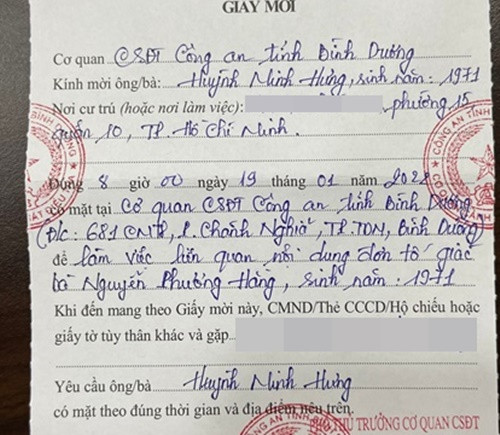 GIẤY MỜI
Cơ quan CSĐT Công an tỉnh Bình Dương
Kính mời ông/bà: Huỳnh Minh Hưng, sinh năm: 1971
Nơi cư trú (hoặc nơi làm việc): phường 15
quận 10, TP. Hồ Chí Minh.
Đúng 8 giờ 00 ngày 19 tháng 01 năm 2022
có mặt tại Cơ quan CSĐT Công an tỉnh Bình Dương
(Đ/c: 681 CMT8, P. Chánh Nghĩa, TP.TDM, Bình Dương
để làm việc liên quan nội dung đơn tố giác
bà Nguyễn Phương Hằng, sinh năm: 1971
Khi đến mang theo Giấy mời này, CMND/Thẻ CCCD/Hộ chiếu hoặc
giấy tờ tùy thân khác và gặp
Yêu cầu ông/bà Huỳnh Minh Hưng
có mặt theo đúng thời gian và địa điểm nêu trên.
PHÓ THỦ TRƯỞNG CƠ QUAN CSĐT